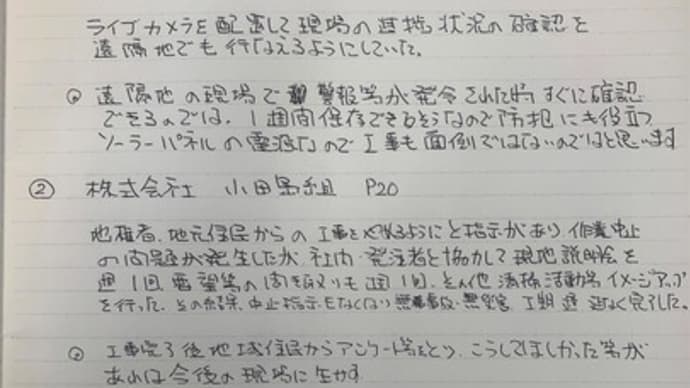 ライブカメラを配置して現場の進捗状況の確認を
遠隔地でも行なえるようにしていた。
遠隔地の現場で警報等が発令された時すぐに確認
できるのでは、1週間保存できるそうなので防犯にも役立つ
ソーラーパネルの電源なので工事も面倒ではないのではと思います
② 株式会社 小田島組 P20
地権者、地元住民からの工事をやめるようにと指示があり、作業中止
の問題が発生したが、社内・発注者と協力して現地説明会を
週1回、要望等の聞き取りも週1回、その他 清掃活動等 イメージアップ
を行った。その結果、中止指示もなくなり 無事故・無災害、工期 遅延なく完了した。
工事完了後地域住民からアンケート等をとり、こうしてほしかった等が
あれば今後の現場に生かす